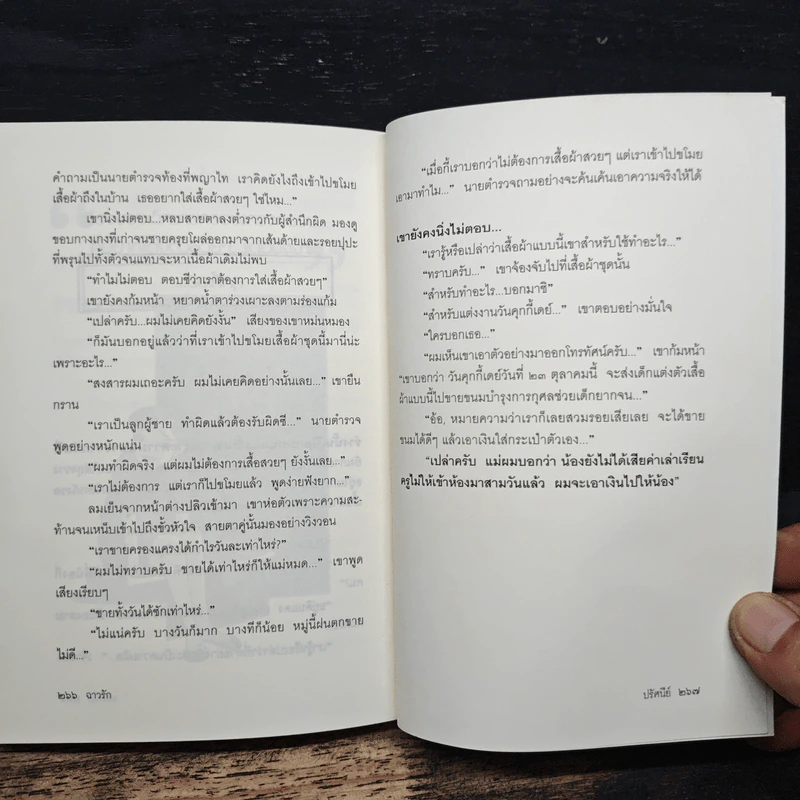 คำถามเป็นนายตำรวจท้องที่พญาไท เราคิดยังไงถึงเข้าไปขโมย
เสื้อผ้าถึงในบ้าน เธออยากใส่เสื้อผ้าสวยๆ ใช่ไหม..."
เขานิ่งไม่ตอบ...หลบสายตาลงต่ำราวกับผู้สำนึกผิด มองดู
ขอบกางเกงที่เก่าจนชายครุยโผล่ออกมาจากเส้นด้ายและรอยปุปะ
ที่พรุนไปทั้งตัวจนแทบจะหาเนื้อผ้าเดิมไม่พบ
"ทำไมไม่ตอบ ตอบซีว่าเราต้องการใส่เสื้อผ้าสวยๆ"
เขายังคงก้มหน้า หยาดน้ำตาร่วงเผาะลงตามร่องแก้ม
"เปล่าครับ...ผมไม่เคยคิดยังงั้น" เสียงของเขาหม่นหมอง
"ก็มันบอกอยู่แล้วว่าที่เราเข้าไปขโมยเสื้อผ้าชุดนี้มานี่น่ะ
เพราะอะไร..."
"สงสารผมเถอะครับ ผมไม่เคยคิดอย่างนั้นเลย..." เขายืน
กราน
"เราเป็นลูกผู้ชาย ทำผิดแล้วต้องรับผิดซี..." นายตำรวจ
พูดอย่างหนักแน่น
"ผมทำผิดจริง แต่ผมไม่ต้องการเสื้อสวยๆ ยังงั้นเลย..."
"เราไม่ต้องการ แต่เราก็ไปขโมยแล้ว พูดง่ายฟังยาก..."
ลมเย็นจากหน้าต่างปลิวเข้ามา เขาห่อตัวเพราะความสะ-
ท้านจนเหน็บเข้าไปถึงขั้วหัวใจ สายตาคู่นั้นมองอย่างวิงวอน
"เราขายครองแครงได้กำไรวันละเท่าไหร่?"
"ผมไม่ทราบครับ ขายได้เท่าไหร่ก็ให้แม่หมด..." เขาพูด
เสียงเรียบๆ
"ขายทั้งวันได้ซักเท่าไหร่..."
"ไม่แน่ครับ บางวันก็มาก บางทีก็น้อย หมู่นี้ฝนตกขาย
ไม่ดี..."
๒๖๖ ฉาวรัก
"เมื่อกี้เราบอกว่าไม่ต้องการเสื้อผ้าสวยๆ แต่เราเข้าไปขโมย
เอามาทำไม..." นายตำรวจถามอย่างจะค้นเค้นเอาความจริงให้ได้
เขายังคงนิ่งไม่ตอบ...
"เรารู้หรือเปล่าว่าเสื้อผ้าแบบนี้เขาสำหรับใช้ทำอะไร..."
"ทราบครับ..." เขาจ้องจับไปที่เสื้อผ้าชุดนั้น
"สำหรับทำอะไร...บอกมาซิ"
"สำหรับแต่งงานวันคุกกี้เดย์..." เขาตอบอย่างมั่นใจ
"ใครบอกเธอ..."
"ผมเห็นเขาเอาตัวอย่างมาออกโทรทัศน์ครับ..." เขาก้มหน้า
"เขาบอกว่า วันคุกกี้เดย์วันที่ ๒๓ ตุลาคมนี้ จะส่งเด็กแต่งตัวเสื้อ
ผ้าแบบนี้ไปขายขนมบำรุงการกุศลช่วยเด็กยากจน..."
"อ้อ, หมายความว่าเราก็เลยสวมรอยเสียเลย จะได้ขาย
ขนมได้ดีๆ แล้วเอาเงินใส่กระเป๋าตัวเอง..."
"เปล่าครับ แม่ผมบอกว่า น้องยังไม่ได้เสียค่าเล่าเรียน
ครูไม่ให้เข้าห้องมาสามวันแล้ว ผมจะเอาเงินไปให้น้อง"
ปรัศนีย์ ๒๖๗